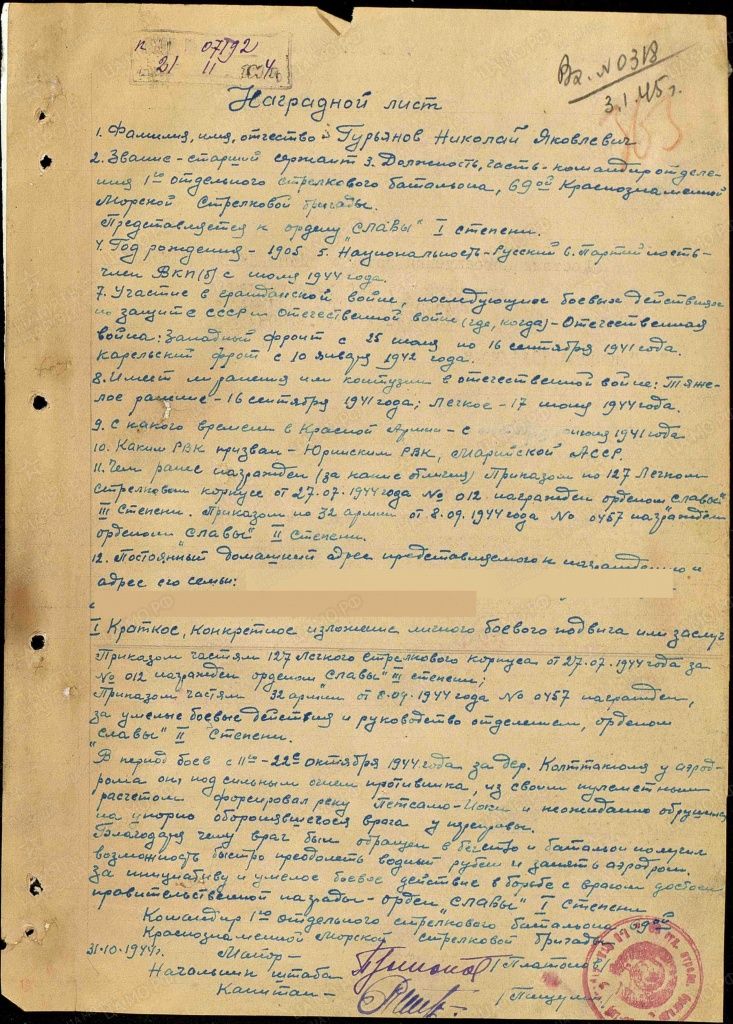 07192
21 II
Вх. №0318
3.1.45г.
Наградной лист
1. Фамилия, имя, отчество Гурьянов Николай Яковлевич
2. Звание - старший сержант 3. Должность, часть - командир отделе-
ния 1го отдельного стрелкового батальона, 69ой Краснознаменной
Морской Стрелковой бригады.
Представляется к ордену "Славы" I степени.
4. Год рождения - 1905 5. Национальность - Русский 6. Партийность -
член ВКП(б) с июля 1944 года.
7. Участие в гражданской войне, последующие боевых действиях
по защите СССР и Отечественной войне (где, когда) - Отечественная
война: Западный фронт с 25 июля по 16 сентября 1941 года.
Карельский фронт с 10 января 1942 года.
8. Имеет ли ранения или контузии в отечественной войне: Тяже-
лое ранение - 16 сентября 1941 года; Легкое - 17 июня 1944 года.
9. С какого времени в Красной Армии - с июня 1941 года
10. Каким РВК призван - Юринским РВК, Марийской АССР.
11. Чем ранее награжден (за какие отличия) Приказом по 127 Легком
стрелковом корпусе от 27.07.1944 года № 012 награжден орденом "Славы"
III степени. Приказом по 32 армии от 8.09.1944 года № 0457 награжден
орденом "Славы" II степени.
12. Постоянный домашний адрес представляемого к и
адрес его семьи:
I Краткое, конкретное изложение личного боевого подвига или заслуг
Приказом частям 127 Легкого Стрелкового корпуса от 27.07.1944 года за
№ 012 награжден орденом "Славы" III степени;
Приказом частям 32 армии от 8.09.1944 года № 0457 награжден,
за умелые боевые действия и руководство отделением, орденом
"Славы" II Степени.
В период боев с 11го - 22е октября 1944 года за дер. Колттакюля у аэрод-
рома он, под сильным огнем противника, из своим пулеметным
расчетом форсировал реку Петсамо-Йоки и неожиданно обрушился
на упорно оборонявшегося врага у переправы.
Благодаря чему враг был обращен в бегство и батальон получил
возможность быстро преодолеть водный рубеж и занять аэродром.
За инициативу и умелое боевое действие в борьбе с врагом достоин
правительственной награды - орден "Славы" I Степени
Командир 1го отдельного стрелкового батальона 69ой
Краснознаменной Морской Стрелковой бригады
31.10.1944г. Майор - /Платонов
Начальник штаба
Капитан -